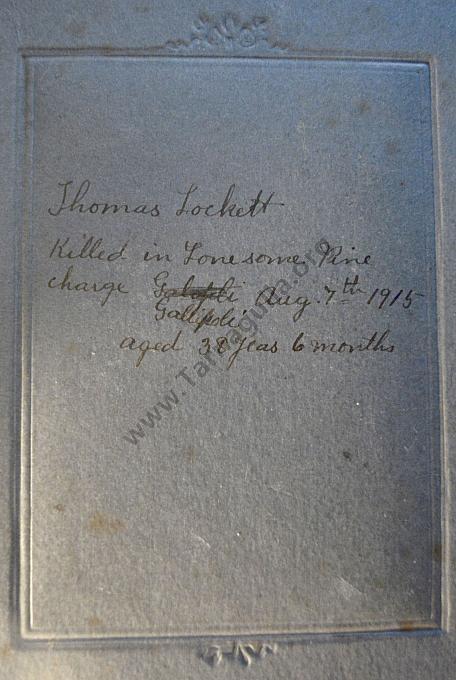 Thomas Lockett
Killed in Lonesome Pine
charge Galopli Aug. 7th 1915
Gallipoli
aged 38 yeas 6 months
www.Tarnagulla.org